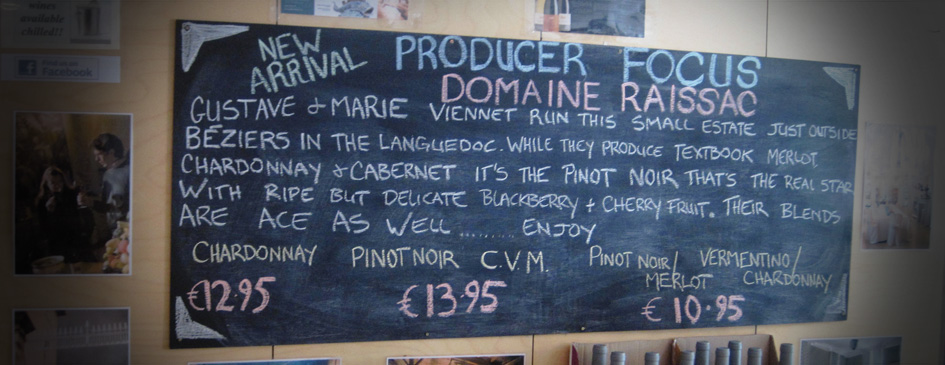 wines
available
chilled!!
Facebook
NEW
ARRIVAL
PRODUCER FOCUS
DOMAINE RAISSAC
GUSTAVE & MARIE VIENNET RUN THIS SMALL ESTATE JUST OUTSIDE
BÉZIERS IN THE LANGUEDOC. WHILE THEY PRODUCE TEXTBOOK MERLOT
CHARDONNAY & CABERNET IT'S THE PINOT NOIR THAT'S THE REAL STAR
WITH RIPE BUT DELICATE BLACKBERRY + CHERRY FRUIT. THEIR BLENDS
ARE ACE AS WELL ........ ENJOY
CHARDONNAY PINOT NOIR C.V.M. PINOT NOIR/ VERMENTINO/
MERLOT CHARDONNAY
€12.95 €13.95 € 10.95